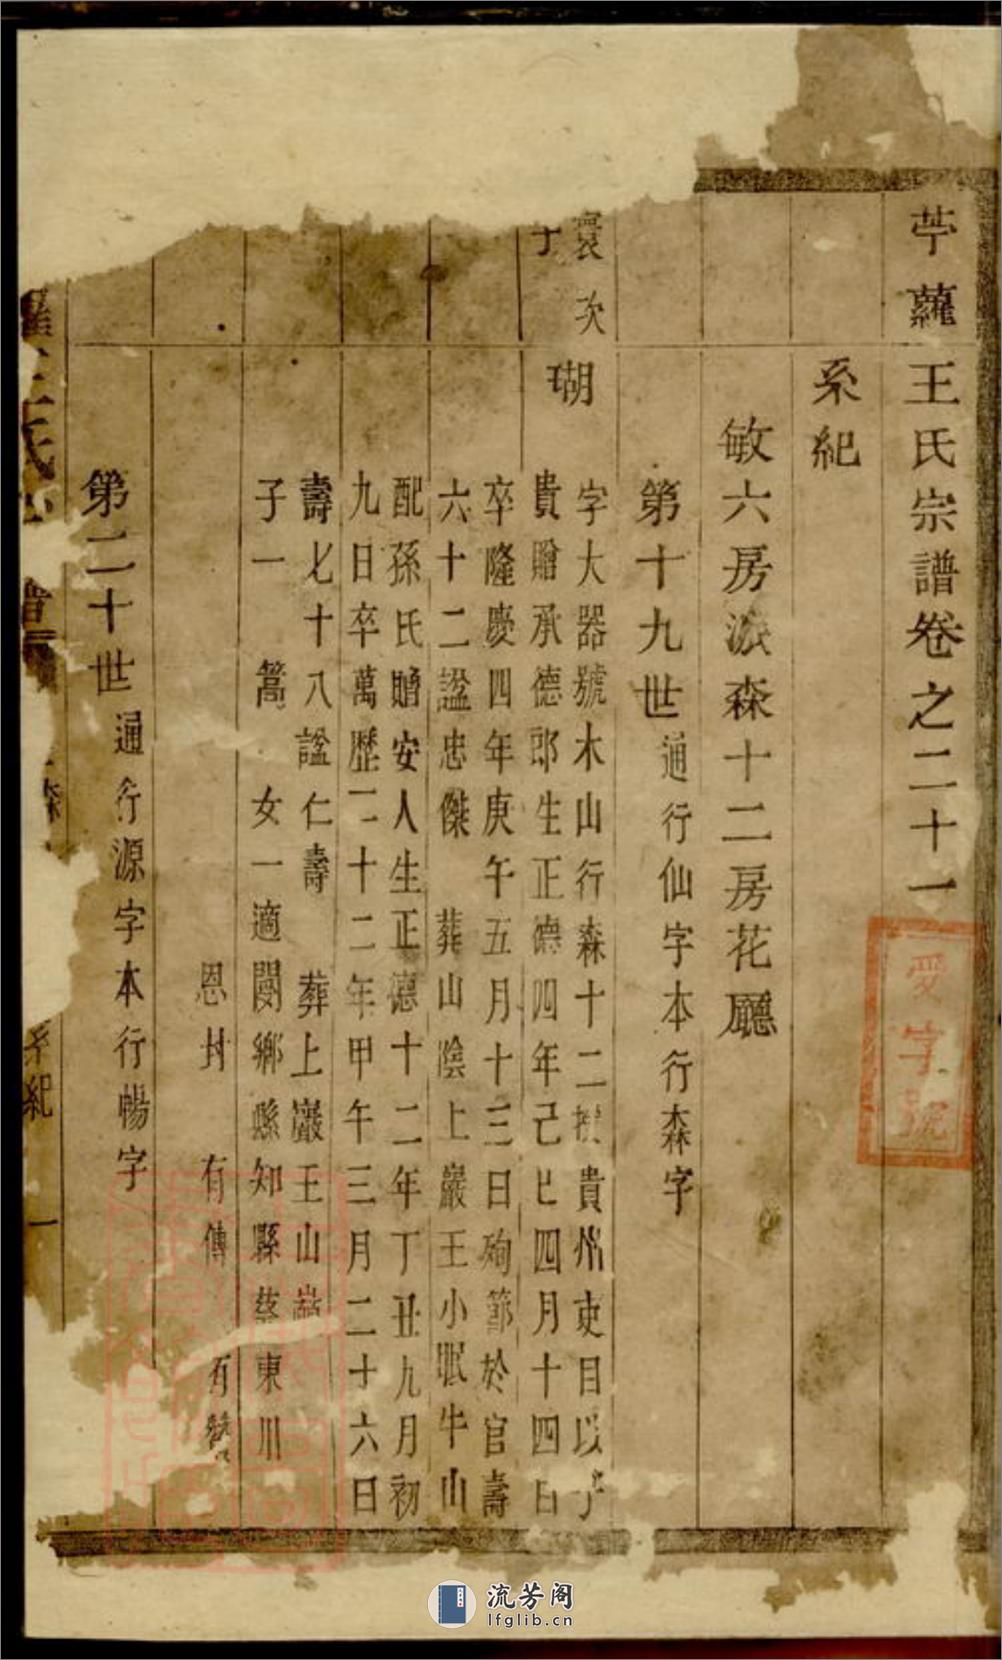 苧蘿王氏宗譜卷之二十一
愛字號
系紀
敏六房派森十二房花廳
第十九世通行仙字本行森字
寰次
子
瑚
字大器號木山行森十二授貴州吏目以子
貴贈承德郎生正德四年己巳四月十四日
卒隆慶四年庚午五月十三日殉節於官壽
六十二諡忠傑 葬山陰上巖王小眠牛山
配孫氏贈安人生正德十二年丁丑九月初
九日卒萬歷二十二年甲午三月二十六日
壽七十八諡仁壽 葬上巖王山
子一 篙 女一適閿鄉縣知縣蔡東川
恩封 有傳 有贊
第二十世通行源字本行暢字
王氏
系紀
一
流芳阁
lfglib.cn